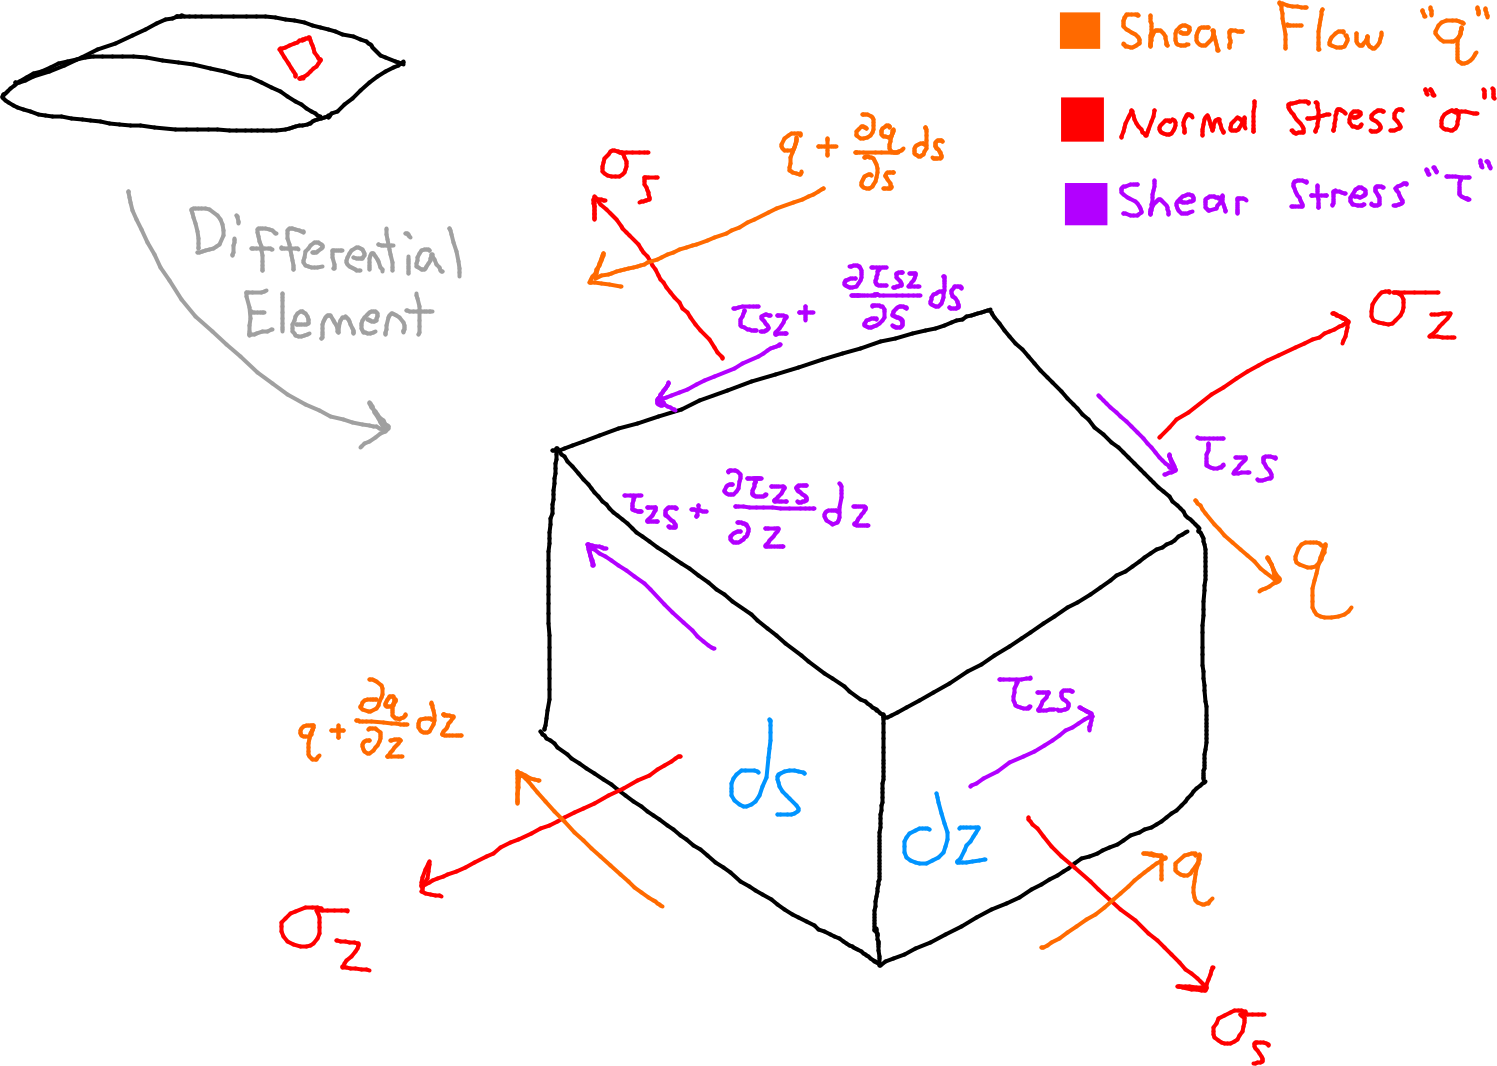 Shear Flow "q"
Normal Stress "σ"
Shear Stress "τ"
Differential
Element
q + ∂q/∂s ds
σₛ
τsz + ∂τsz/∂s ds
σz
τzs
τzs + ∂τzs/∂z dz
q
τzs
q + ∂q/∂z dz
ds
dz
q
σz
σₛ